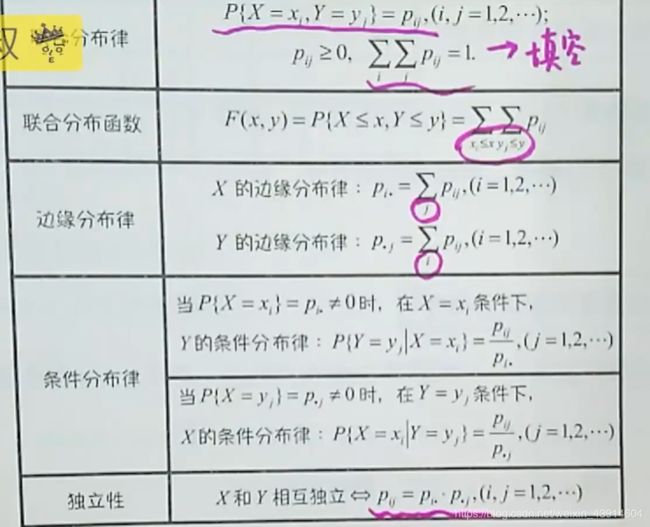 P{X = x_i, Y = y_j} = p_ij, (i, j = 1,2,⋯);
权
分布律
p_ij ≥ 0, ∑_i ∑_j p_ij = 1. → 填空
联合分布函数
F(x, y) = P{X ≤ x, Y ≤ y} = ∑_{x_i≤x} ∑_{y_j≤y} p_ij
X 的边缘分布律: p_i• = ∑_j p_ij, (i = 1,2,⋯)
边缘分布律
Y 的边缘分布律: p_•j = ∑_i p_ij, (i = 1,2,⋯)
当 P{X = x_i} = p_i• ≠ 0 时, 在 X = x_i 条件下,
Y 的条件分布律: P{Y = y_j|X = x_i} = p_ij/p_i•, (j = 1,2,⋯)
条件分布律
当 P{X = y_j} = p_•j ≠ 0 时, 在 Y = y_j 条件下,
X 的条件分布律: P{X = x_i|Y = y_j} = p_ij/p_•j, (j = 1,2,⋯)
独立性
X 和 Y 相互独立 ⇔ p_ij = p_i• · p_•j, (i, j = 1,2,⋯)
https://blog.csdn.net/weixin_43914604